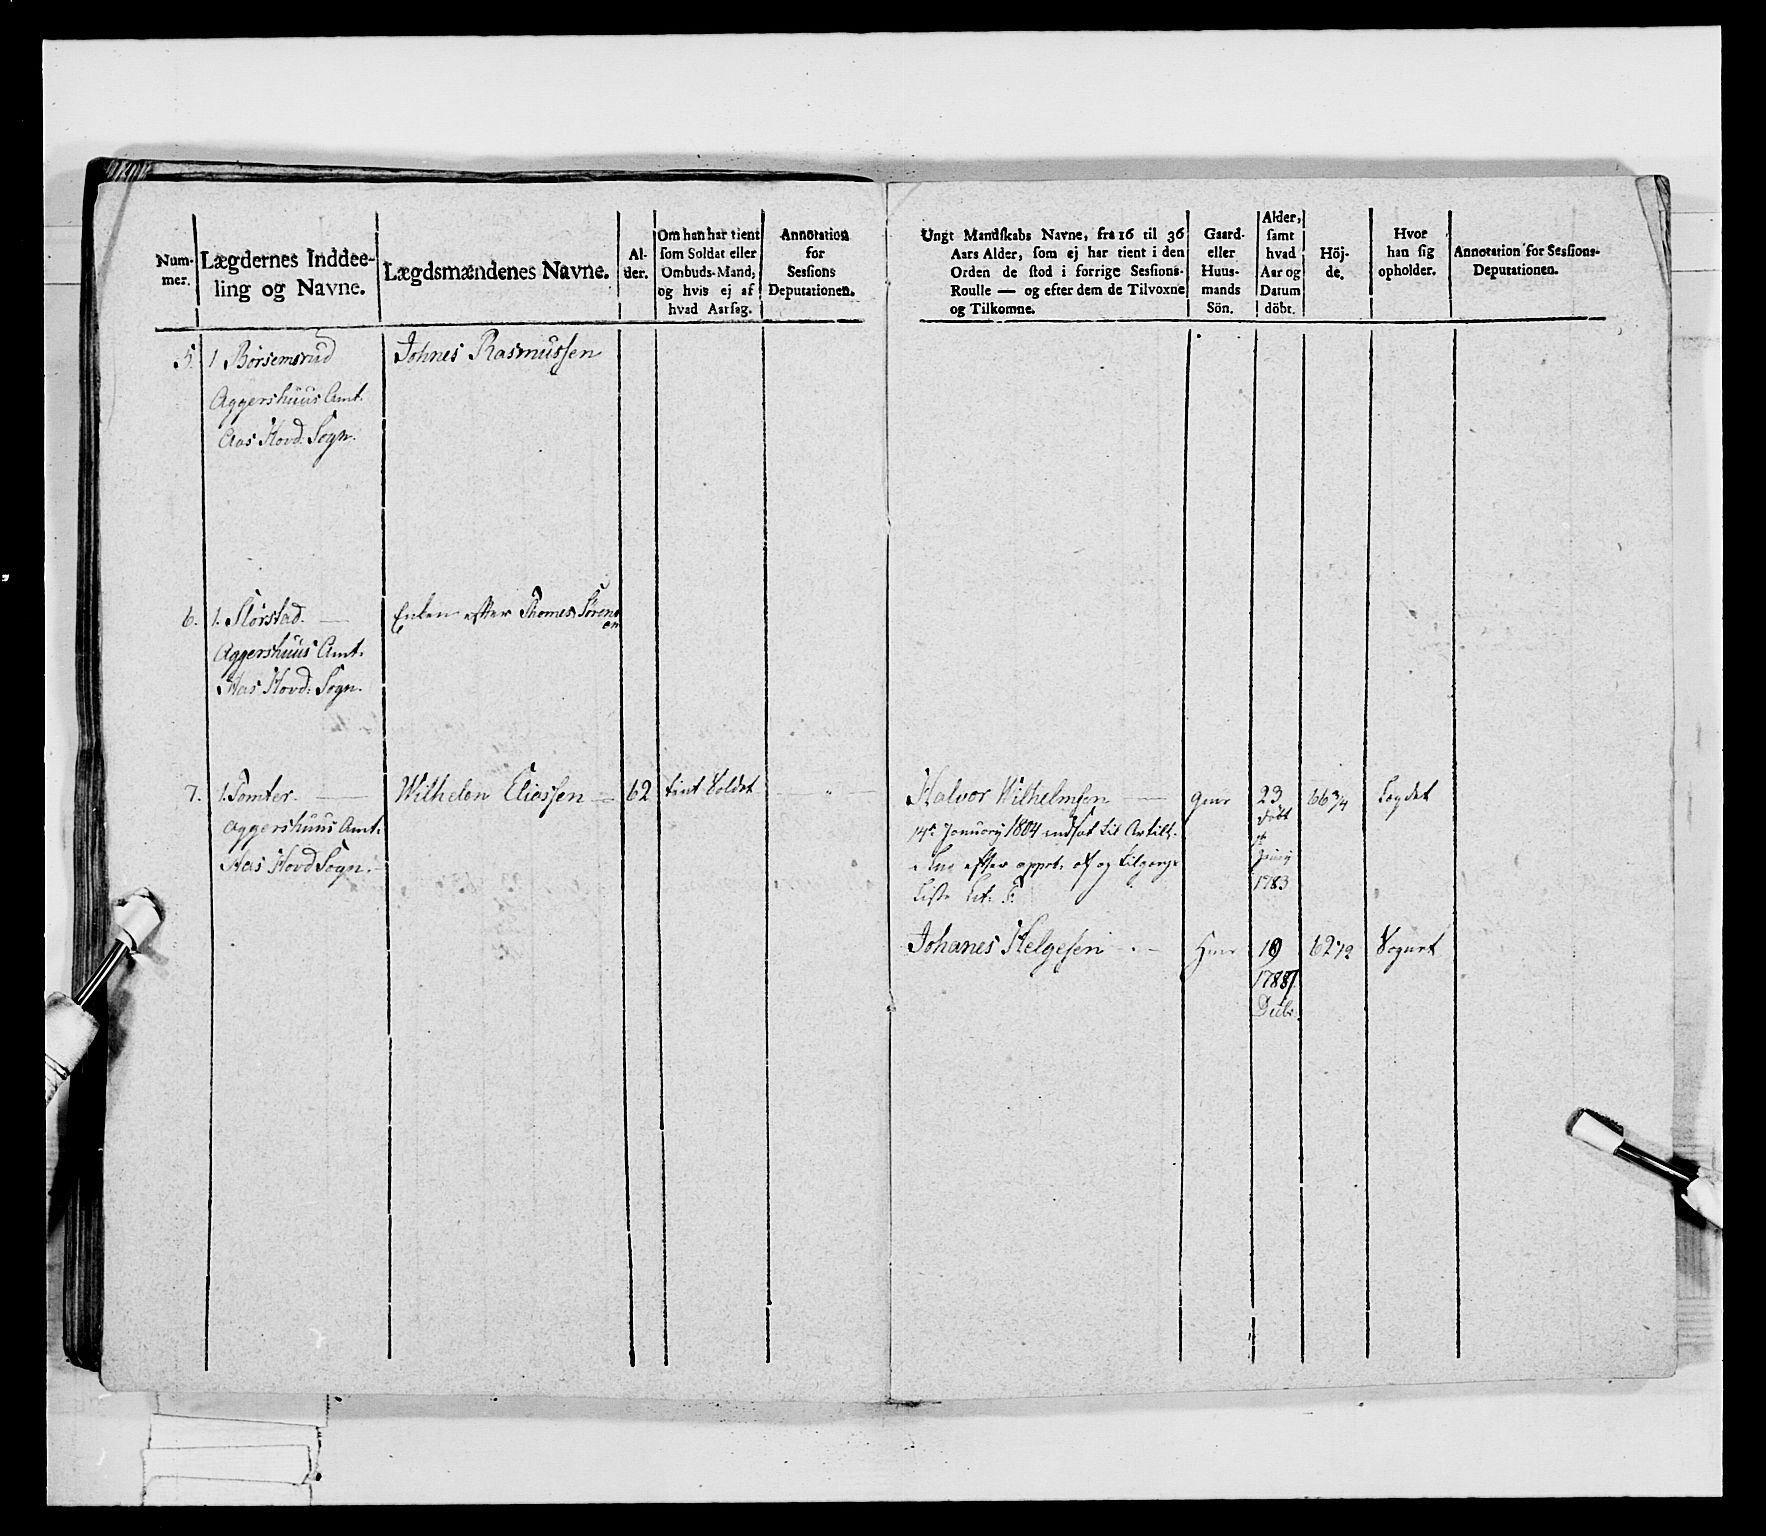 Num-
mer.
Lægdernes Inddee-
ling og Navne.
Lægdsmændenes Navne.
Al-
der.
Om han har tient
som Soldat eller
Ombuds-Mand,
og hvis ej af
hvad Aarsag.
Annotation
for
Sessions
Deputationen.
5. 1 Börsemsrud
Johnes Rasmussen
Aggershuus Amt.
Aas Hovd: Sogn.
6. 1. Störstad.
Enken efter Thomes Sörens
en
Aggershuus Amt.
Aas Hovd: Sogn.
7. 1. Tomter.
Wilhelm Eliassen 62 tient Soldat
Aggershuus Amt.
Aas Hovd Sogn.
Ungt Mandskabs Navne, fra 16 til 36
Aars Alder, som ej har tient i den
Orden de stod i forrige Sessions-
Roulle — og efter dem de Tilvoxne
og Tilkomne.
Gaard-
eller
Huus-
mands
Sön.
Alder,
samt
hvad
Aar og
Datum
döbt.
Höj-
de.
Hvor
han sig
opholder.
Annotation for Sessions-
Deputationen.
Halvor Wilhelmsen 23 66 3/4 Legdet
döbt
14de January 1804 indsat til Artill.
efter af og Tilgangs
1783
Liste Lit:
Johanes Helgesen 19 62 1/2
1788